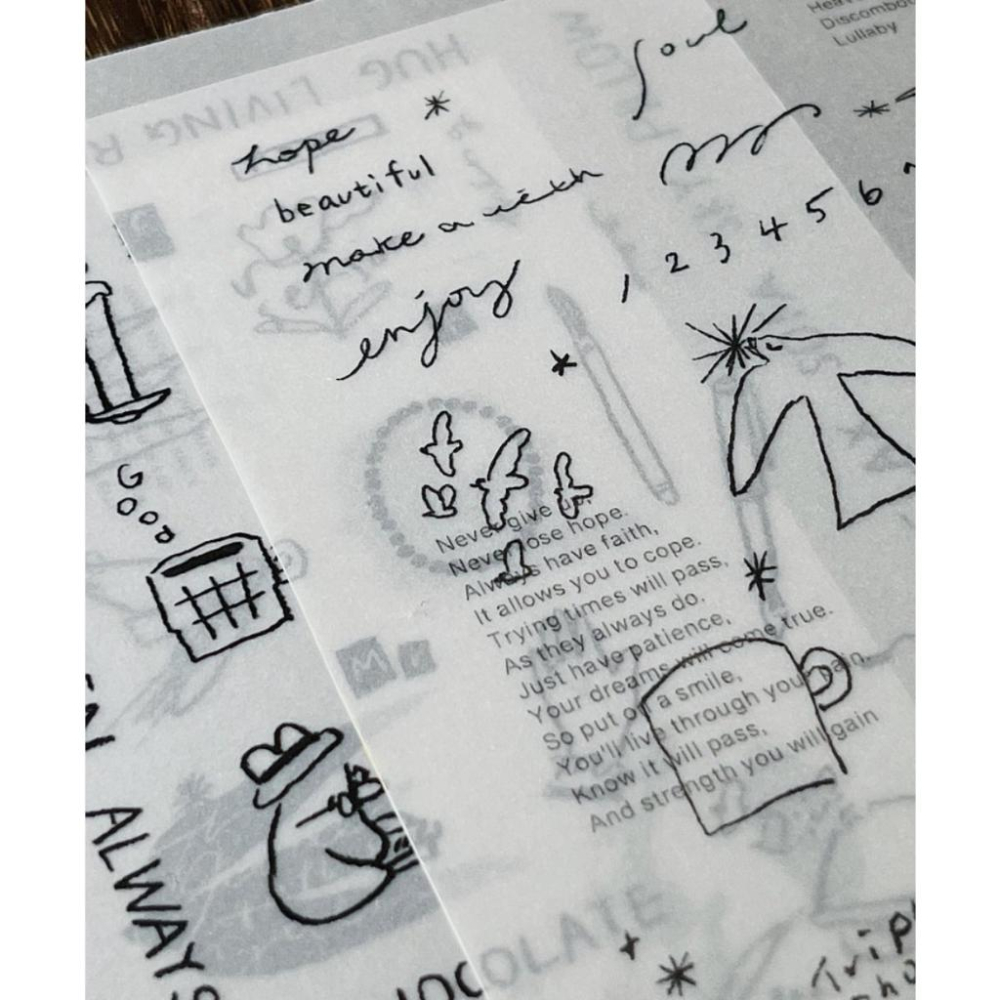 HUG LIVING R
soul
Discombo
Lullaby
hope
beautiful
make a wish
enjoy
1 2 3 4 5 6
Never give up,
Never lose hope.
Always have faith,
It allows you to cope.
Trying times will pass,
As they always do.
Just have patience,
Your dreams will come true.
So put on a smile,
You'll live through your pain.
Know it will pass,
And strength you will gain
ALWAYS
OCOLATE
Trip